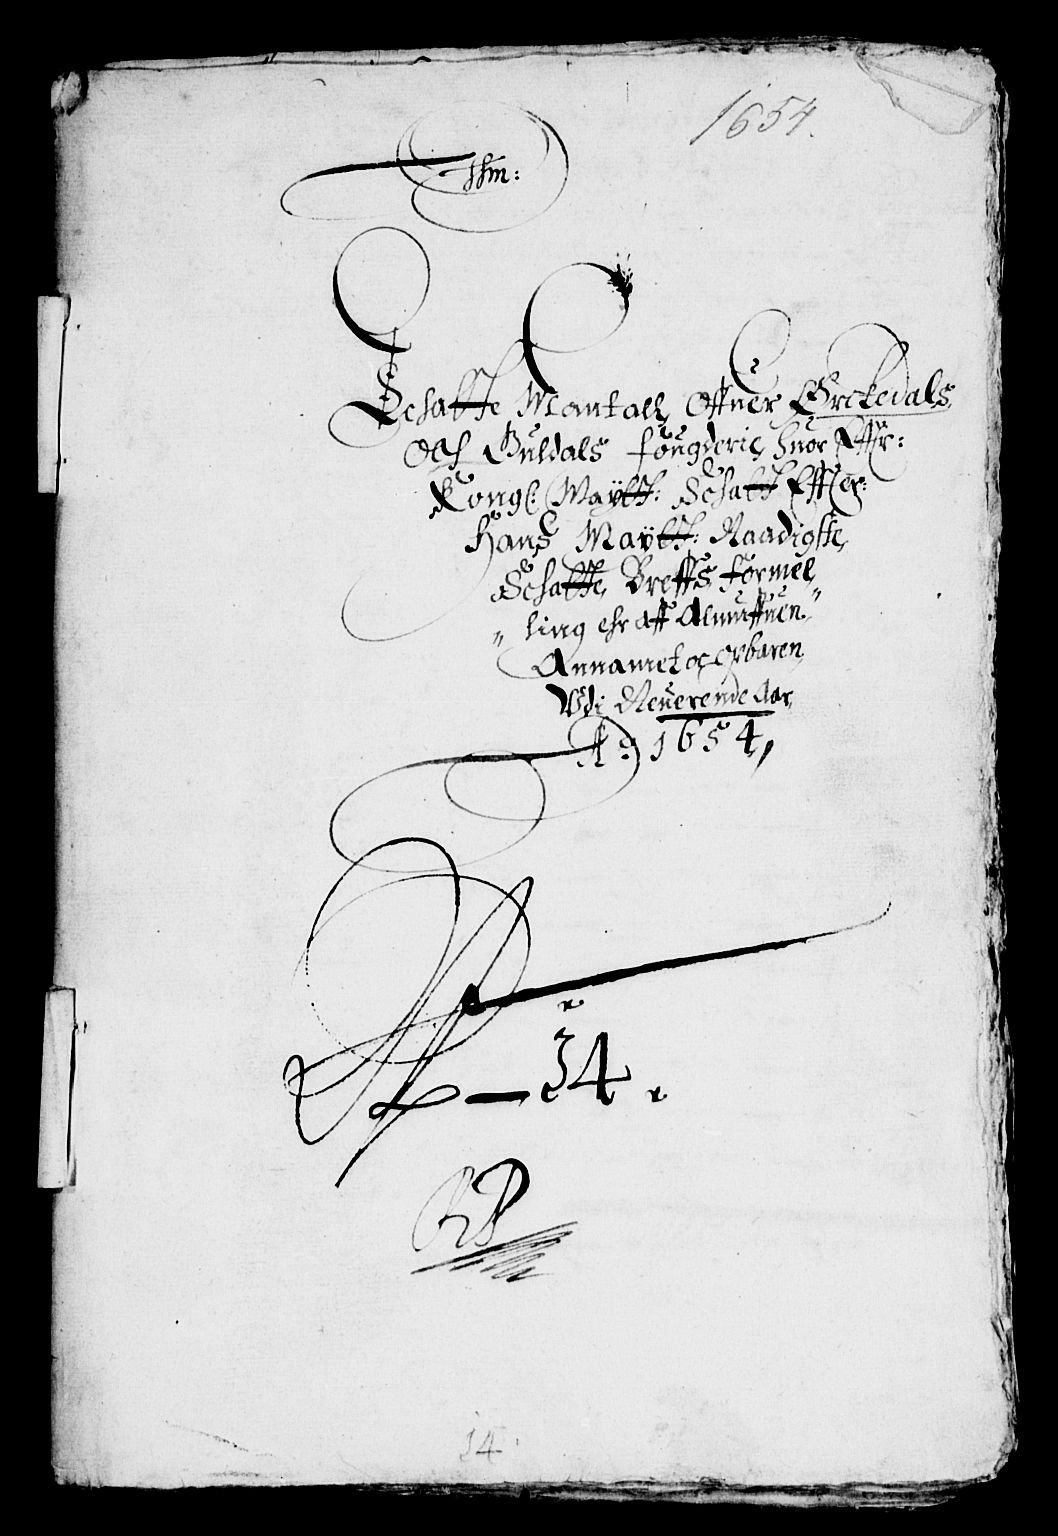 1654.
Schatte Mantall Offuer Ørckedals
Och Guldals fougderie, huor Effr:
Kongl: Maÿtt: Schatt Effter
Hans Maÿtt: Naadigste
Schatte Breffs formel
ling ehr aff Almuffuen
Annamet oc opbaren
Udi Neruerende Aar
Ao 1654,
34
14